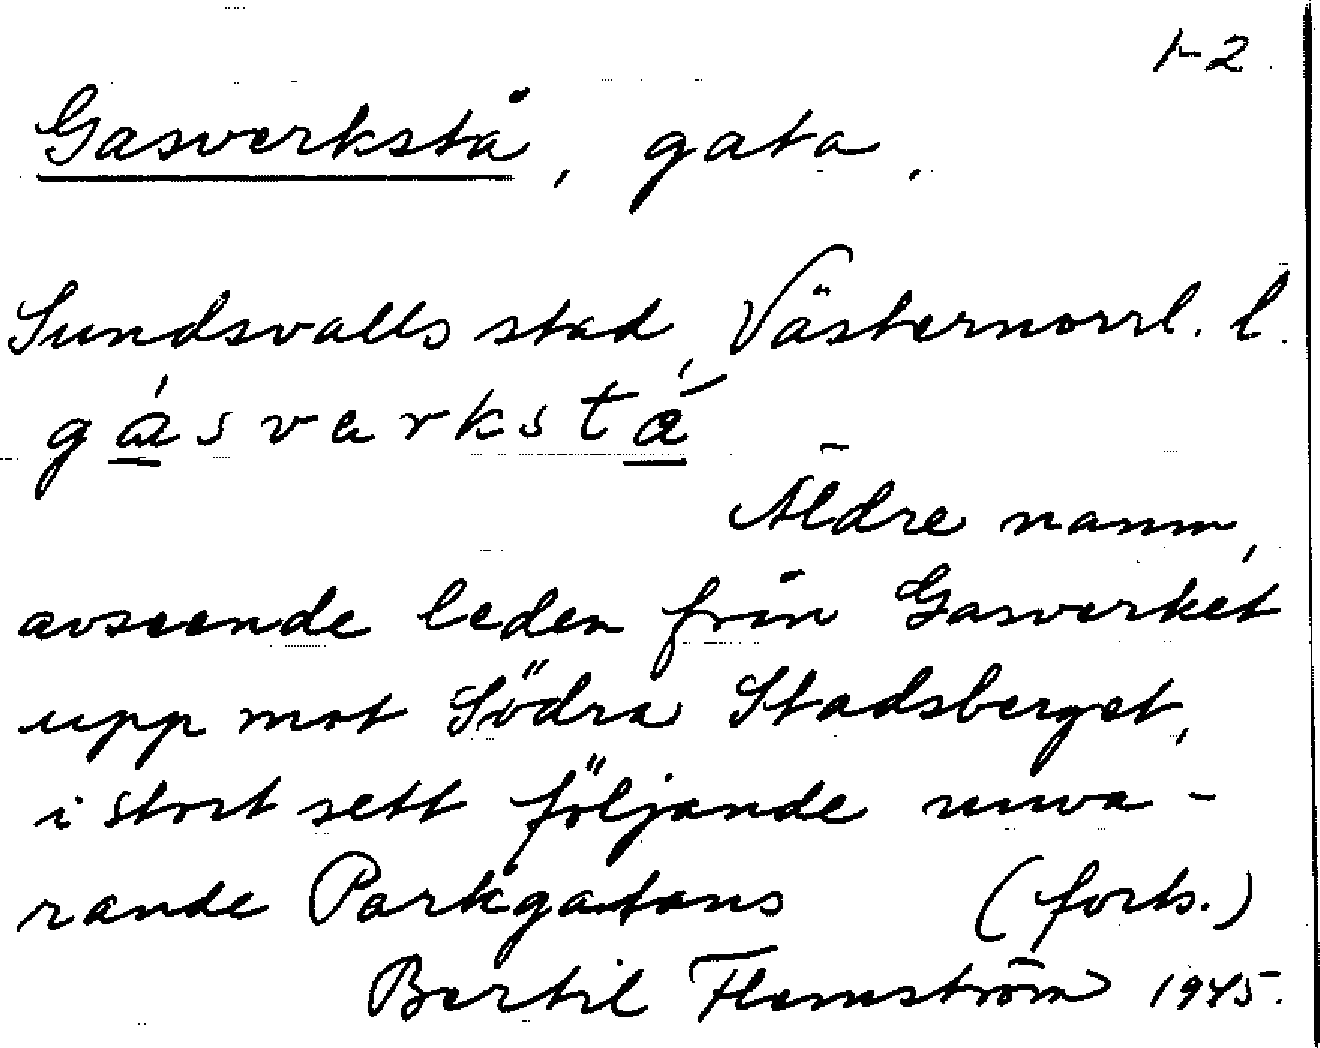 1-2.
Gasverkstå, gata.
Sundsvalls stad, Västernorrl. l.
gá̱svarkstá̱
Äldre namn,
avseende leden från Gasverket
upp mot Södra Stadsberget,
i stort sett följande nuva-
rande Parkgatans (forts.)
Bertil Flemström 1945.